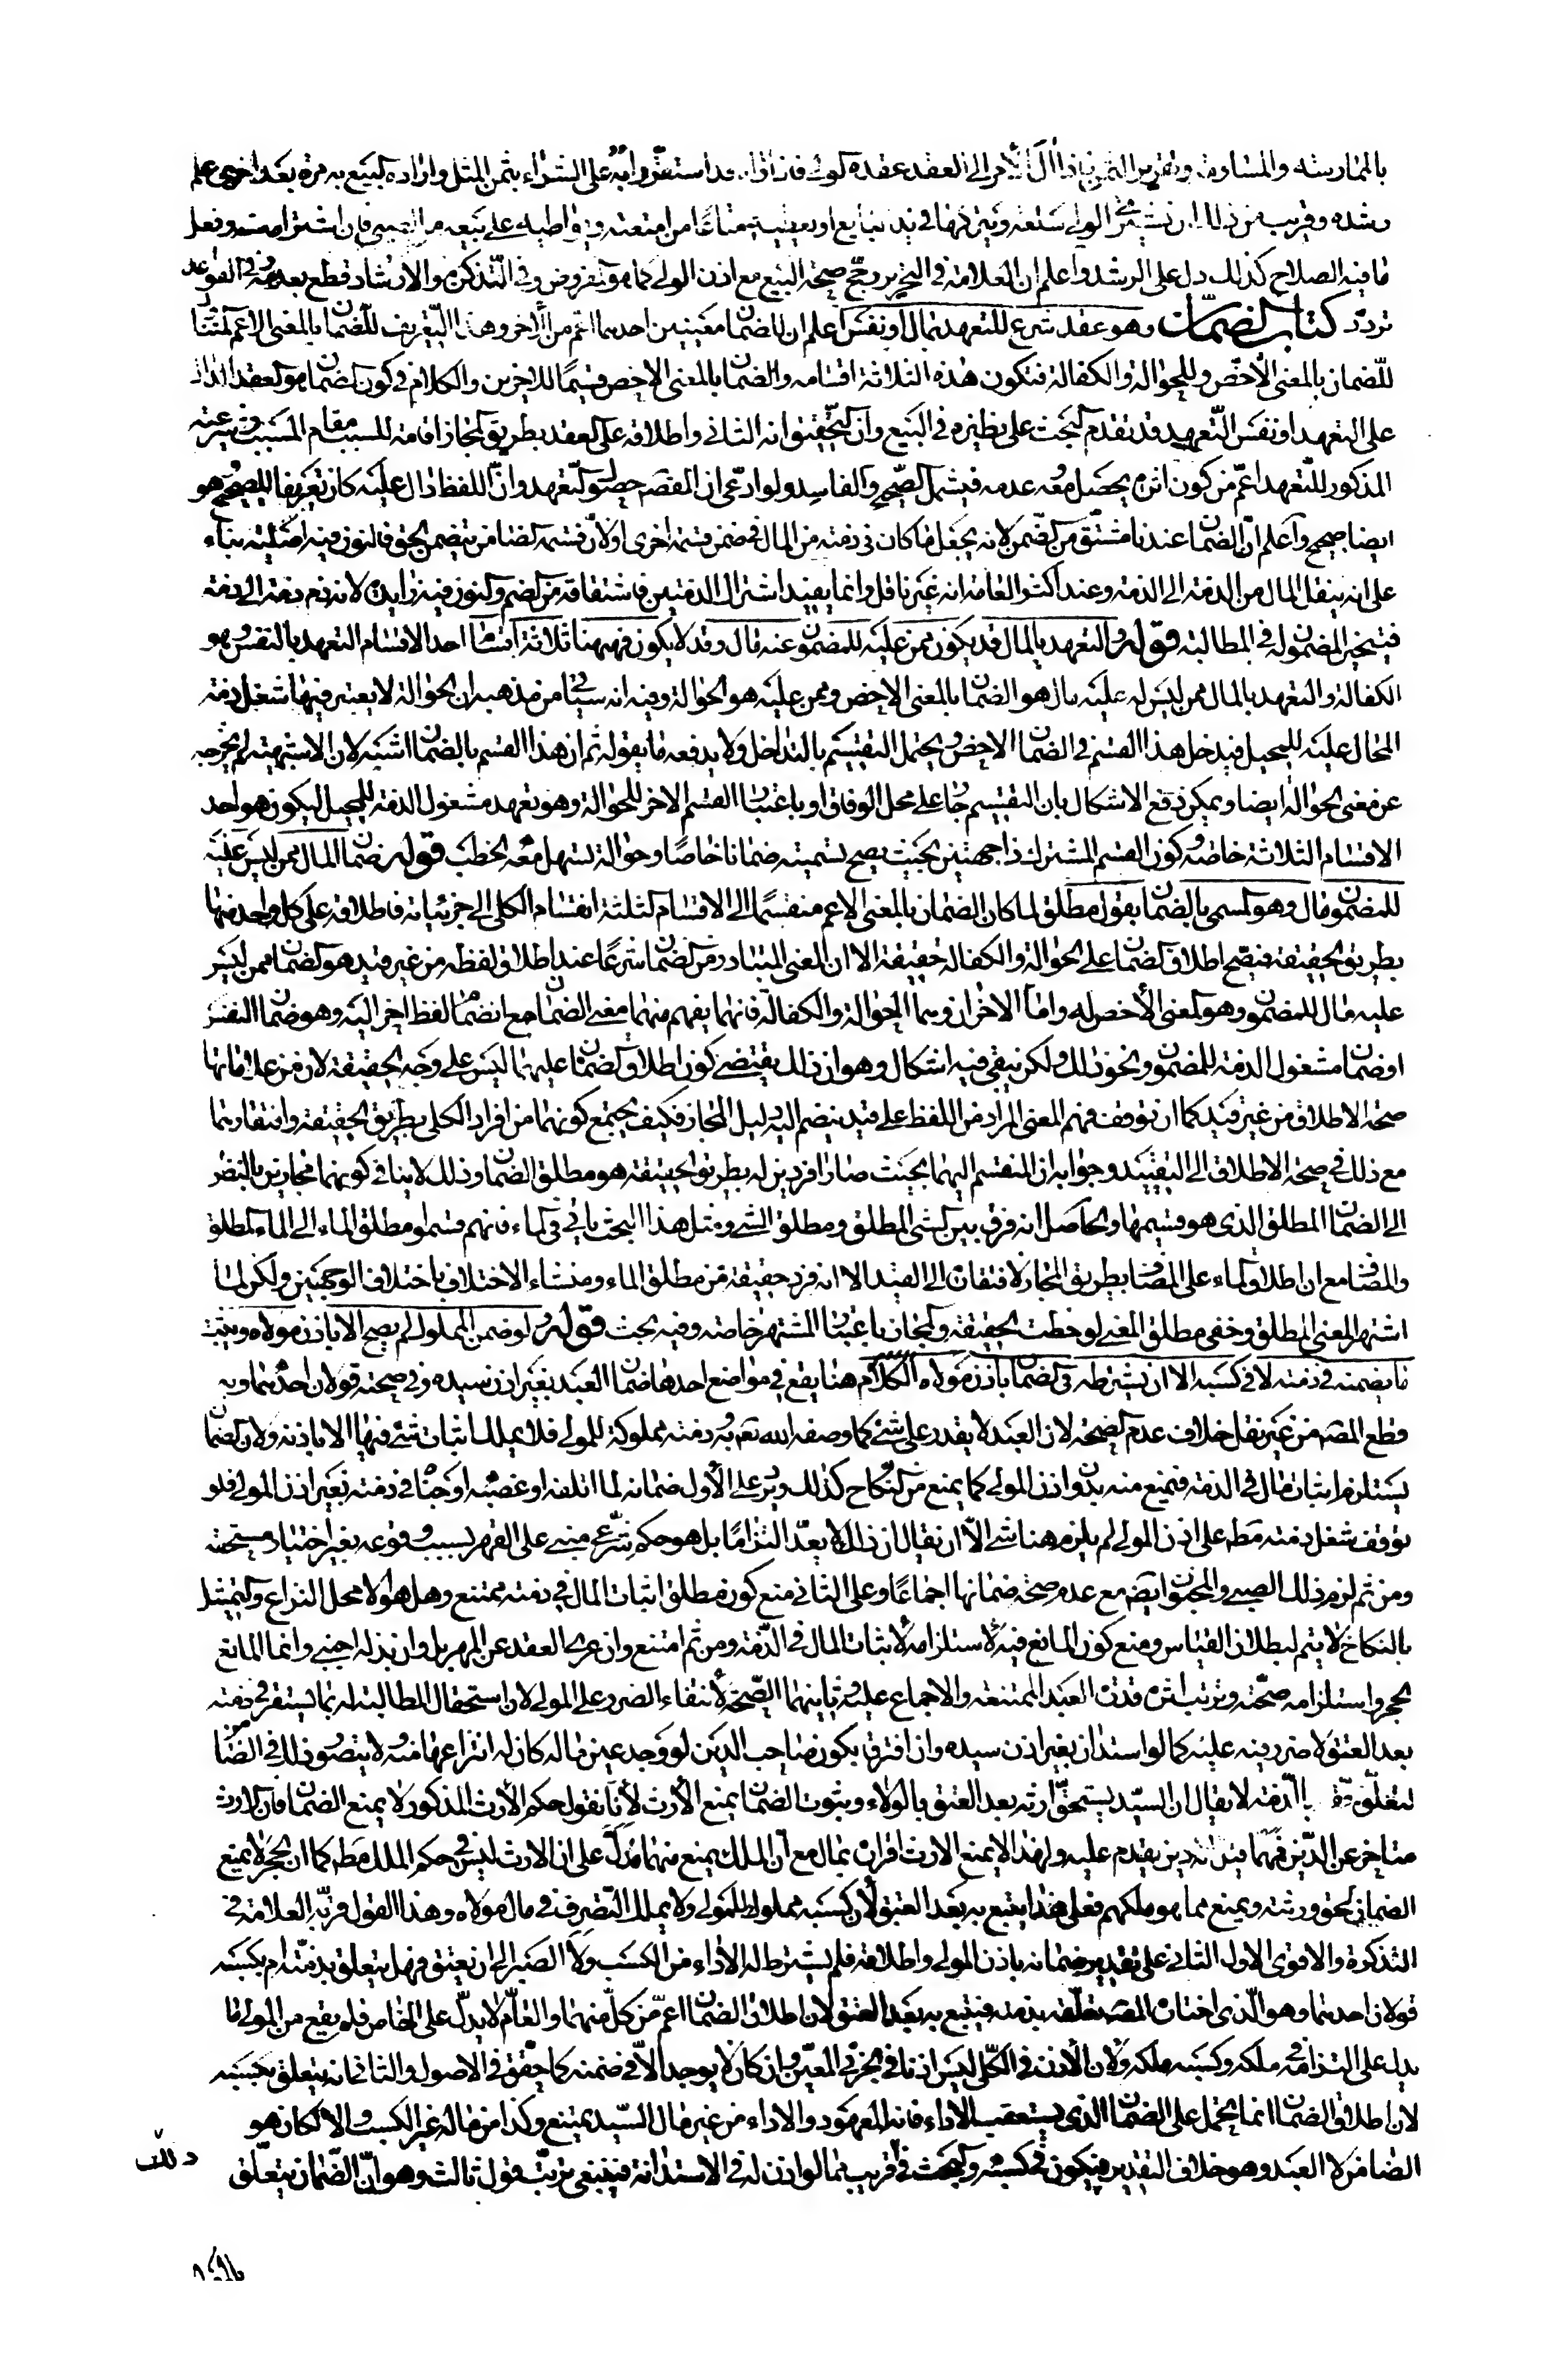 بالممارسة والمساومة وتقرير الثمن فاذا آل الامر الى العقد عقده الولى فان اذا قد استقر رايه على الشراء بثمن المثل واراده البيع به مرة بعد اخرى علم
رشده وقريب من ذلك ان يشترى الولى سلعة ويتركها فى يد بتايع او يعطيه متاعا من امتعته ويواطيه على بيعه من الصبى فان اشتراه منه وفعل
ما فيه الصلاح كذلك دل على الرشد واعلم ان العلامة فى التحرير رجح صحة البيع مع اذن الولى كما هو مفروض وفى التذكرة والارشاد قطع بعدمه وفى القواعد
تردد كتاب الضمان وهو عقد شرع للتعهد بمال او نفس اعلم ان للضمان معنيين احدهما اعم من الآخر وهذا التعريف للضمان بالمعنى الاعم المتناول
للضمان بالمعنى الاخص وللحوالة والكفالة فتكون هذه الثلاثة اقسامه والضمان بالمعنى الاخص قسيما للاخرين والكلام فى كون الضمان هو العقد الدال
على التعهد او نفس التعهد قد تقدم البحث على نظيره فى البيع وان التحقيق انه الثانى واطلاقه على العقد بطريق المجاز اقامة للسبب مقام المسبب وشرعيته
المذكور للتعهد اعم من كون اثره يحصل معه عدمه فيشمل الصحيح والفاسد ولو ادعى ان القصد حصول التعهد وان اللفظ دال عليه كان تعريفا للصحيح وهو
ايضا صحيح واعلم ان الضمان عندنا مشتق من الضمن لانه يجعل ما كان فى ذمته من المال فى ضمن ذمة اخرى او لان ذمة الضامن يتضمن الحق فالنون فيه اصلية بناء
على انه ينقل المال من الذمة الى الذمة وعند اكثر العامة انه غير ناقل وانما يفيد اشتراك الذمتين فاشتقاقه من الضم والنون فيه زايدة لانه ضم ذمة الى ذمة
فيتخير المضمون له فى المطالبة قوله والتعهد بالمال قد يكون ممن عليه للمضمون عنه مال وقد لا يكون فههنا ثلاثة اقسام احد الاقسام التعهد بالنفس وهو
الكفالة والتعهد بالمال ممن ليس له عليه مال هو الضمان بالمعنى الاخص وممن عليه هو الحوالة وفيه انه سياتى من مذهبه ان الحوالة لا يعتبر فيها شغل ذمة
المحال عليه للمحيل فيدخل هذا القسم فى الضمان الاخص ويحتمل التقسيم بالتداخل ولا يدفعه ما يقوله ثم ان هذا القسم بالضمان اشبه لان الاشبهية لم تخرجه
عن معنى الحوالة ايضا ويمكن دفع الاشكال بان التقسيم جار على محل الوفاق او باعتبار القسم الاخر للحوالة وهو تعهد مشغول الذمة للمحيل ليكون هو احد
الاقسام الثلاثة خاصة وكون القسم المشترك ذا جهتين بحيث يصح تسميته ضمانا خاصا وحوالة تسهل معه الخطب قوله ضمان المال ممن ليس عليه
للمضمون مال وهو المسمى بالضمان بقول مطلق لما كان الضمان بالمعنى الاعم منقسما الى الاقسام الثلثة انقسام الكلى الى جزئياته فاطلاقه على كل واحد منها
بطريق الحقيقة فيصح اطلاق الضمان على الحوالة والكفالة حقيقة الا ان المعنى المتبادر من الضمان شرعا عند اطلاق لفظه من غير قيد هو الضمان ممن ليس
عليه مال للمضمون وهو المعنى الاخص له واما الاخران وهما الحوالة والكفالة فانهما يفهم منهما معنى الضمان مع انضمام لفظ اخر اليه وهو ضمان النفس
او ضمان مشغول الذمة للمضمون ونحو ذلك ولكن يبقى فيه اشكال وهو ان ذلك يقتضى كون اطلاق الضمان عليهما ليس على وجه الحقيقة لان من علاماتها
صحة الاطلاق من غير قيد كما ان توقف فهم المعنى المراد من اللفظ على قيد ينضم اليه دليل المجاز فكيف يجتمع كونهما من افراد الكلى بطريق الحقيقة وافتقارهما
مع ذلك فى صحة الاطلاق الى التقييد وجوابه ان المنقسم اليهما بحيث صارا فردين له بطريق الحقيقة هو مطلق الضمان وذلك لا ينافى كونهما مجازين بالنظر
الى الضمان المطلق الذى هو قسيمهما والحاصل انه فرق بين الشى المطلق ومطلق الشى ومثل هذا البحث ياتى فى الماء فانهم قسموا مطلق الماء الى الماء المطلق
والمضاف مع ان اطلاق الماء على المضاف بطريق المجاز لافتقاره الى القيد الا انه فرد حقيقة من مطلق الماء ومنشاء الاختلاف باختلاف الوجهين ولكن لما
اشتهر المعنى المطلق وخفى مطلق المعنى لوحظت الحقيقة والمجاز باعتبار المشتهر خاصة وفيه بحث قوله ولو ضمن المملوك لم يصح الا باذن مولاه ويثبت
ما يضمنه فى ذمته لا فى كسبه الا ان يشترطه فى الضمان باذن مولاه الكلام هنا يقع فى مواضع احدها ضمان العبد بغير اذن سيده وفى صحته قولان احدهما وبه
قطع المصنف من غير نقل خلاف عدم الصحة لان العبد لا يقدر على شئ كما وصفه الله تعالى به وذمته مملوكة للمولى فلا يملك اثبات شئ فيها الا باذنه ولان الضمان
يستلزم اثبات مال فى الذمة فيمنع منه بدون اذن المولى كما يمنع من النكاح كذلك ويرد على الاول ضمانه لما اتلفه او غصبه او جناه فى ذمته بغير اذن المولى فلو
توقف شغل ذمته مطلقا على اذن المولى لم يلزم هنا شى الا ان يقال ان ذلك لا يعد التزاما بل هو حكم شرعى مبنى على القهر بسبب وقوعه بغير اختيار مستحقه
ومن ثم لزم ذلك الصبى والمجنون ايضا مع عدم صحة ضمانها اجماعا وعلى الثانى منع كون مطلق اثبات المال فى ذمته ممتنع وهل هو الا محل النزاع والتمثيل
بالنكاح لا يتم لبطلان القياس ومنع كون المانع فيه لاستلزامه لاثبات المال فى الذمة ومن ثم امتنع وان عرى العقد عن المهر بل وان بذله اجنبى وانما المانع
الحجر واستلزامه صحته وترتب اثره قدرة العبد الممتنعة والاجماع عليه وثانيهما الصحة لانتفاء الضرر على المولى لان استحقاق المطالبة له بما يستقر فى ذمته
بعد العتق لا ضرر فيه عليه كما لو استدان بغير اذن سيده وان افترقا بكون صاحب الدين لو وجد عين ماله كان له انتزاعها منه ولا يتصور ذلك فى الضمان
لتعلق بالذمة لا يقال ان السيد يستحق ارثه بعد العتق بالولاء وبثبوت الضمان يمنع الارث لانا نقول حكم الارث المذكور لا يمنع الضمان فان الارث
متاخر عن الدين فمهما دين يقدم عليه ولهذا لا يمنع الارث اقراره بمال مع ان الملك يمنع منهما فدل على ان الارث ليس فى حكم الملك مطلقا كما ان الحجر لا يمنع
الضمان لحق ورثته ويمنع مما هو ملكهم فعلى هذا يتبع به بعد العتق لان كسبه مملوك للمولى ولا يملك التصرف فى مال مولاه وهذا القول قربه العلامة فى
التذكرة والاقوى الاول الثانى على تقدير ضمانه باذن المولى واطلاقه فلم يشترط له الاداء من الكسب ولا الصبر الى ان يعتق فهل يتعلق بذمته ام بكسبه
قولان احدهما وهو الذى اختاره المصنف تعلقه بذمته فيتبع به بعد العتق لان اطلاق الضمان اعم من كل منهما والعام لا يدل على الخاص فلم يقع من المولى ما
يدل على التزامه فى ملكه وكسبه ملكه ولان الاذن فى الكلى ليس اذنا فى الجزئى المعين وان كان لا يوجد الا فى ضمنه كما حقق فى الاصول والثانى انه يتعلق بكسبه
لان اطلاق الضمان انما يحمل على الضمان الذى يستعقب الاداء فانه المعهود والاداء من غير مال السيد يمتنع وكذا من ماله غير الكسب والا لكان هو
الضامن لا العبد وهو خلاف التقدير فيكون فى كسبه والبحث فى قريب مما لو اذن له فى الاستدانة فينبغى ترتب قول ثالث وهو ان الضمان يتعلق